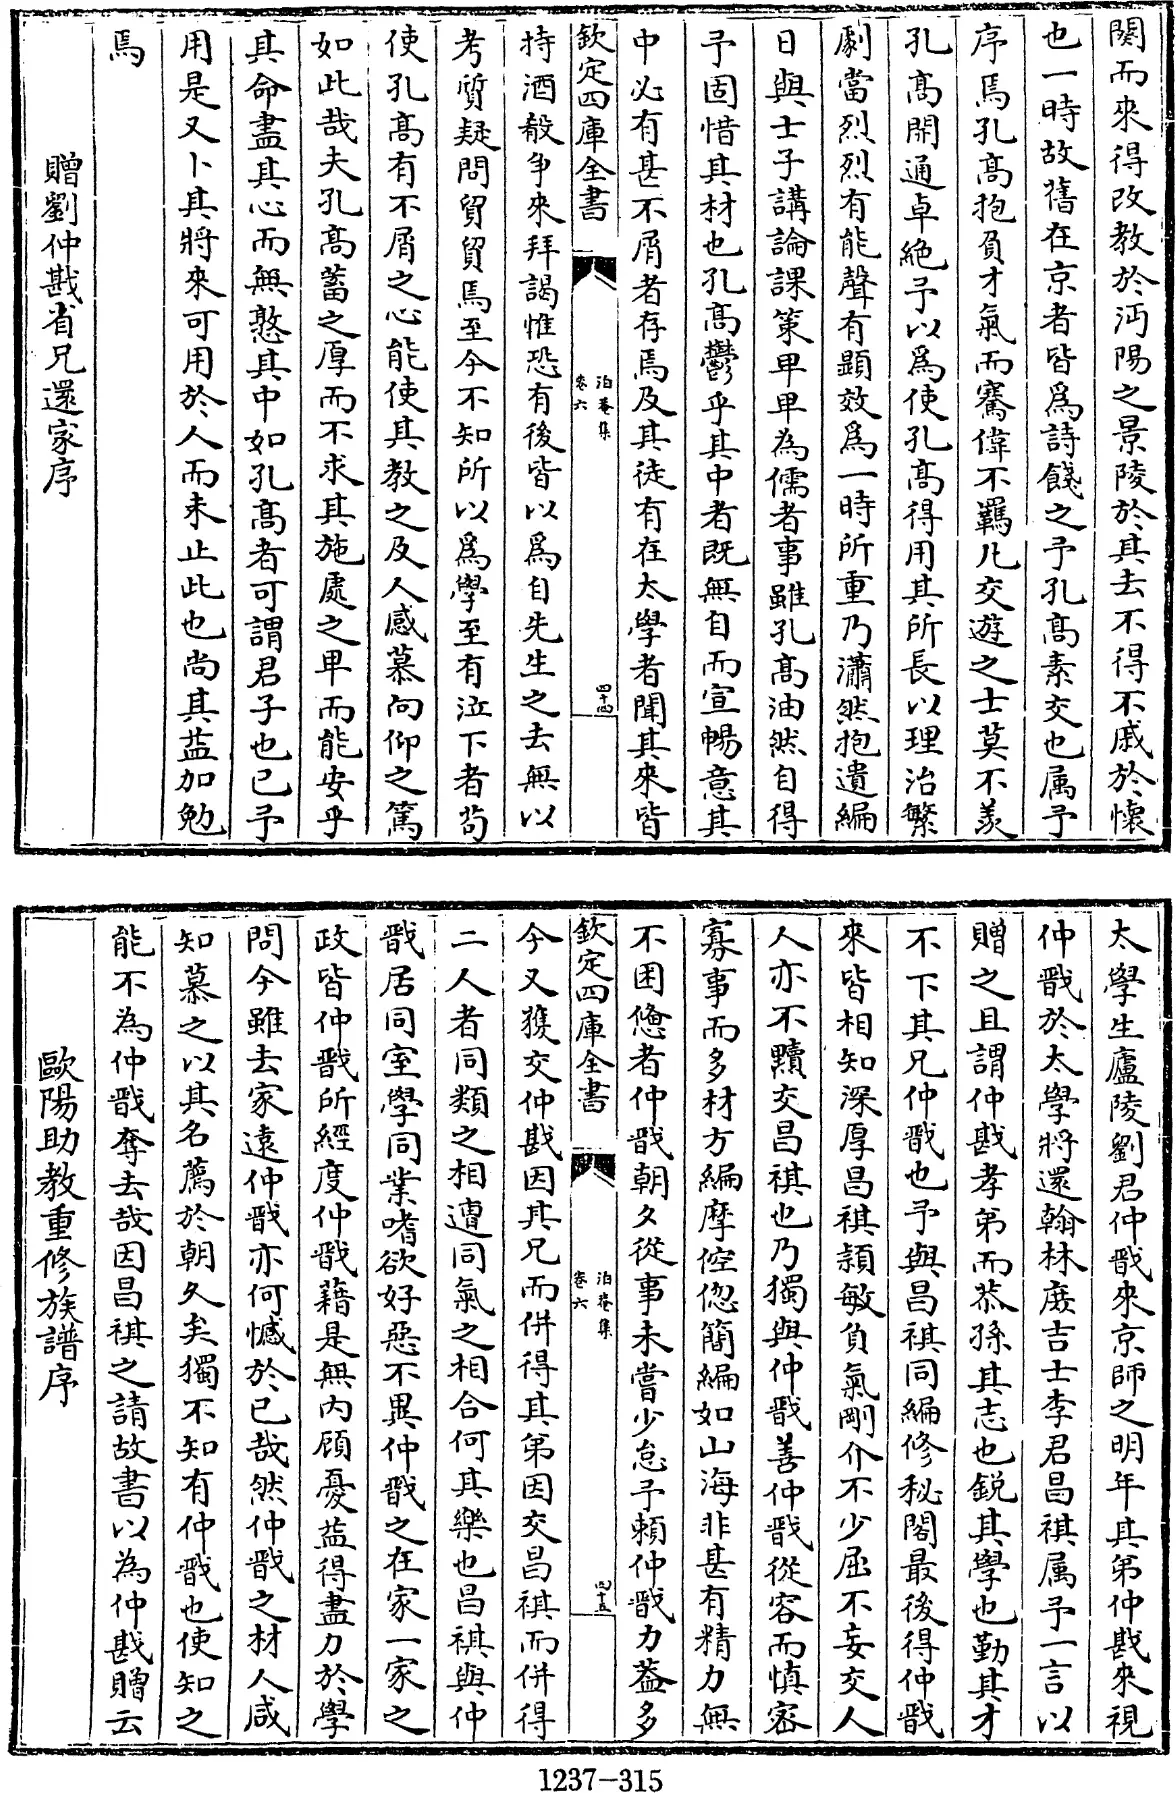 闋而來得改教於沔陽之景陵於其去不得不戚於懷
也一時故舊在京者皆爲詩餞之予孔髙素交也属予
序焉孔髙抱負才氣而騫偉不羈凡交遊之士莫不羨
孔髙開通卓絶予以爲使孔髙得用其所長以理治繁
劇當烈烈有能聲有顯效爲一時所重乃瀟然抱遺編
日與士子講論課策卑卑為儒者事雖孔髙油然自得
予固惜其材也孔髙鬱乎其中者既無自而宣暢意其
中必有甚不屑者存焉及其徒有在太學者聞其來皆
欽定四庫全書
泊菴集
卷六
四十四
持酒殽争來拜謁惟恐有後皆以爲自先生之去無以
考質疑問貿貿焉至今不知所以爲學至有泣下者茍
使孔髙有不屑之心能使其教之及人感慕向仰之篤
如此哉夫孔髙蓄之厚而不求其施處之卑而能安乎
其命盡其心而無憝其中如孔髙者可謂君子也已予
用是又卜其將來可用於人而未止此也尚其益加勉
焉
贈劉仲戡省兄還家序
太學生廬陵劉君仲戩來京師之明年其弟仲戡來視
仲戩於太學將還翰林庶吉士李君昌祺属予一言以
贈之且謂仲戡孝弟而恭孫其志也鋭其學也勤其才
不下其兄仲戩也予與昌祺同編修秘閣最後得仲戩
來皆相知深厚昌祺穎敏負氣剛介不少屈不妄交人
人亦不黷交昌祺也乃獨與仲戩善仲戩從容而慎宻
寡事而多材方編摩倥偬簡編如山海非甚有精力無
不困憊者仲戩朝夕從事未嘗少怠予頼仲戩力葢多
欽定四庫全書
泊菴集
卷六
四十五
今又獲交仲戡因其兄而併得其弟因交昌祺而併得
二人者同類之相遭同氣之相合何其樂也昌祺與仲
戩居同室學同業嗜欲好惡不異仲戩之在家一家之
政皆仲戩所經度仲戩藉是無内顧憂益得盡力於學
問今雖去家遠仲戩亦何憾於已哉然仲戩之材人咸
知慕之以其名薦於朝久矣獨不知有仲戩也使知之
能不為仲戩奪去哉因昌祺之請故書以為仲戡贈云
歐陽助教重修族譜序
1237-315